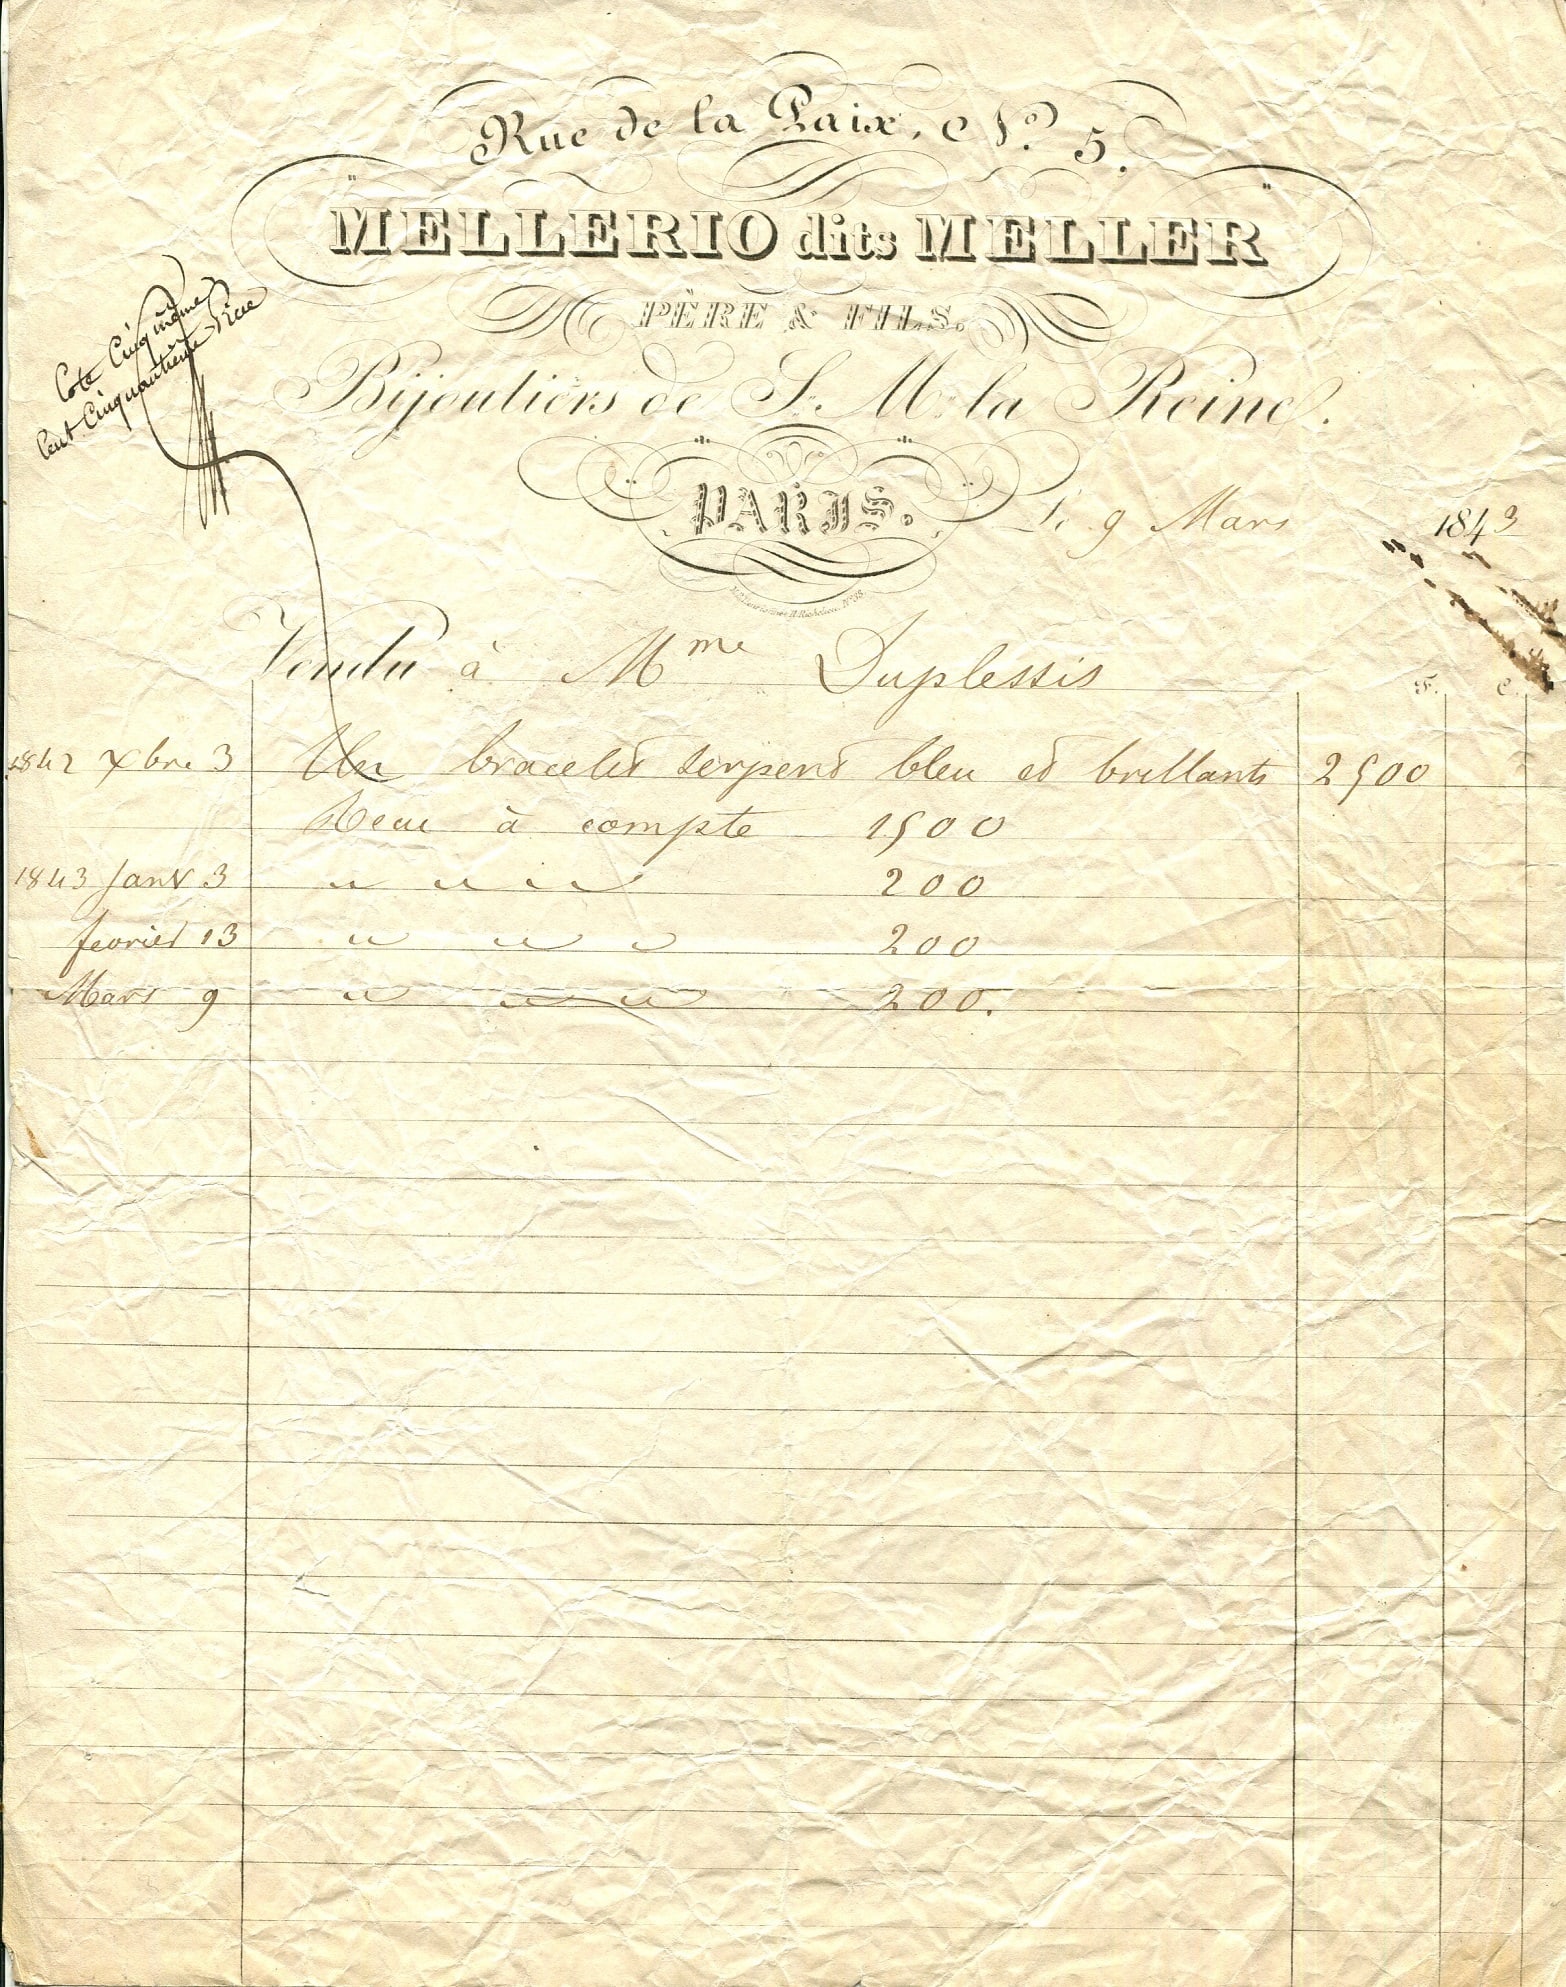 Rue de la Paix, No. 5.
MELLERIO dits MELLER
PÈRE & FILS.
Bijoutiers de S. M. la Reine.
PARIS.
Le 9 Mars 1843
Cote Cinquième
Cent Cinquantième Pièce
Vendu à Mme Duplessis
F. C.
1842 Xbre 3 Un bracelet serpent bleu et brillants 2500
Recu à compte 1500
1843 Janv 3 " " " 200
fevrier 13 " " " 200
Mars 9 " " " 200.